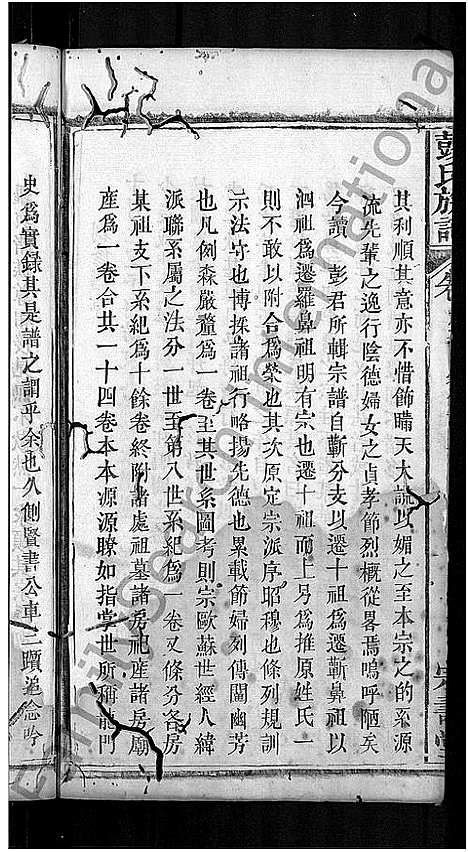 彭氏族譜
其利順其意亦不惜飾瞞天大謊以媚之至本宗之的系源
流先輩之逸行陰德婦女之貞孝節烈概從畧焉嗚呼陋矣
今讀 彭君所輯宗譜自蘄分支以遷十祖爲遷蘄鼻祖以
泗祖爲遷羅鼻祖明有宗也遷十祖而上另爲推原姓氏一
則不敢以附合爲榮也其次原定宗派序昭穆也條列規訓
示法守也博採諸祖行略揚先德也累載節婦列傳闡幽芳
也凡例森嚴釐爲一卷至其世系圖考則宗歐蘇世經人緯
派聯系屬之法分一世至第八世系紀爲一卷又條分各房
某祖支下系紀爲十餘卷終附諸處祖墓諸房祀産諸房廟
産爲一卷合共一十四卷本本源源瞭如指掌世所稱龍門
史爲實錄其是譜之謂乎余也久側賢書公車二躓追念吟
FamilySearch International